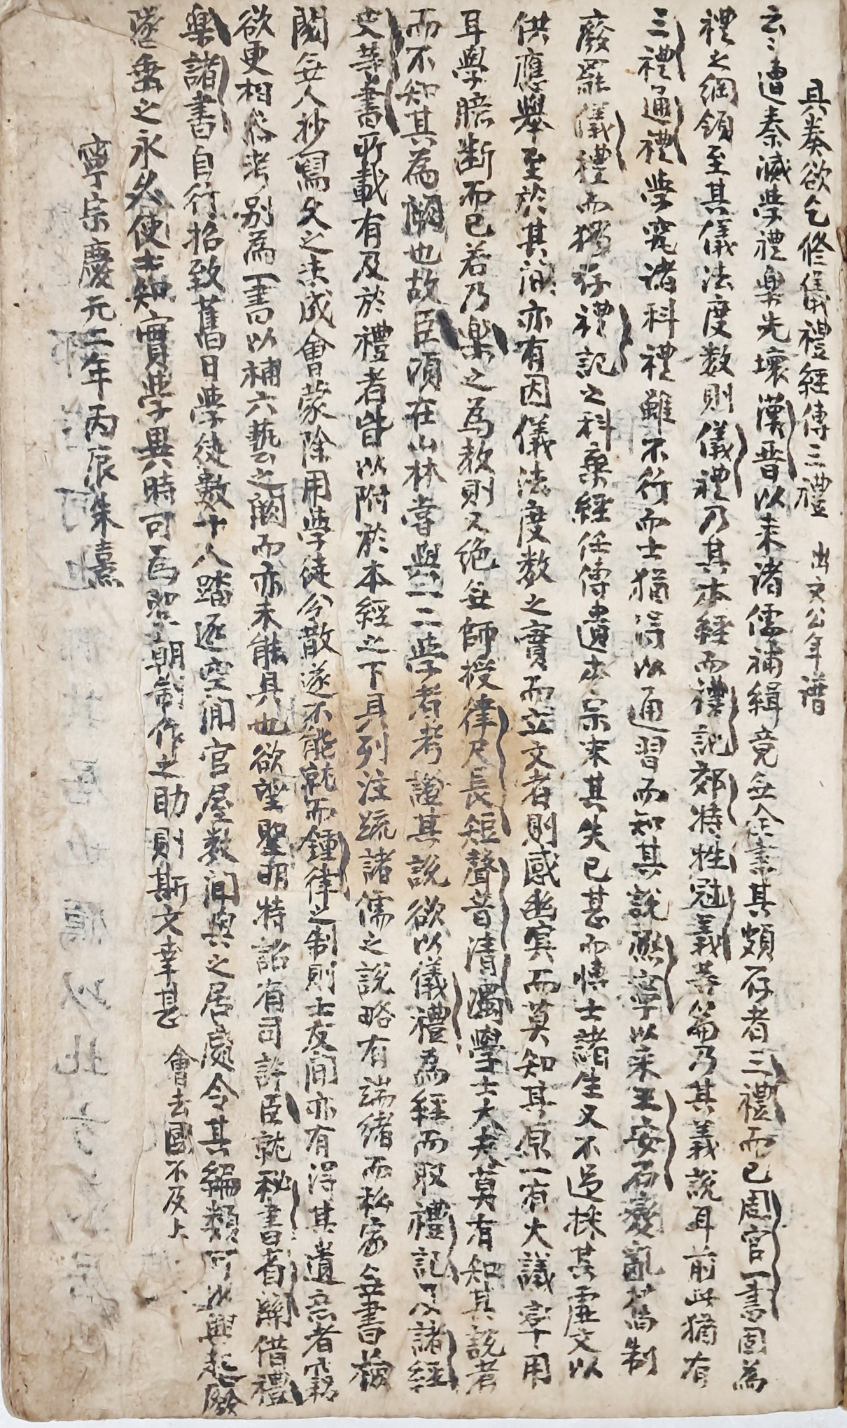 具奏欲乞修儀禮經傳三禮 出文公年譜
云〻遭秦滅學禮樂先壞漢晉以來諸儒補緝竟無全書其頗存者三禮而已周官一書固爲
禮之綱領至其儀法度數則儀禮乃其本經而禮記郊特牲冠義等篇乃其義說耳前此猶有
三禮通禮學究諸科禮雖不行而士猶得以通習而知其說熙寧以來王安石變亂舊制
廢罷儀禮而獨存禮記之科棄經任傳遺本宗末其失已甚而博士諸生又不過採其虛文以
供應舉至於其間亦有因儀法度數之實而立文者則感幽冥而莫知其原一有大議率用
耳學臆断而已若乃樂之爲教則又絕無師授律尺長短聲音清濁學士大夫莫有知其說者
而不知其爲闕也故臣頃在山林嘗與一二學者考證其說欲以儀禮爲經而取禮記及諸經
史等書所載有及於禮者皆以附於本經之下具列注疏諸儒之說略有端緒而私家無書檢
閱無人抄寫久之未成會蒙除用學徒分散遂不能就而鍾律之制則士友間亦有得其遺意者竊
欲更相參考別爲一書以補六藝之闕而亦未能具也欲望聖明特詔有司許臣就秘書省關借禮
樂諸書自行招致舊日學徒數十人踏逐空閒官屋數間與之居處令其編類可以興起廢
墜垂之永久使士知實學異時可爲聖朝制作之助則斯文幸甚 會去國不及上
寧宗慶元二年丙辰朱熹